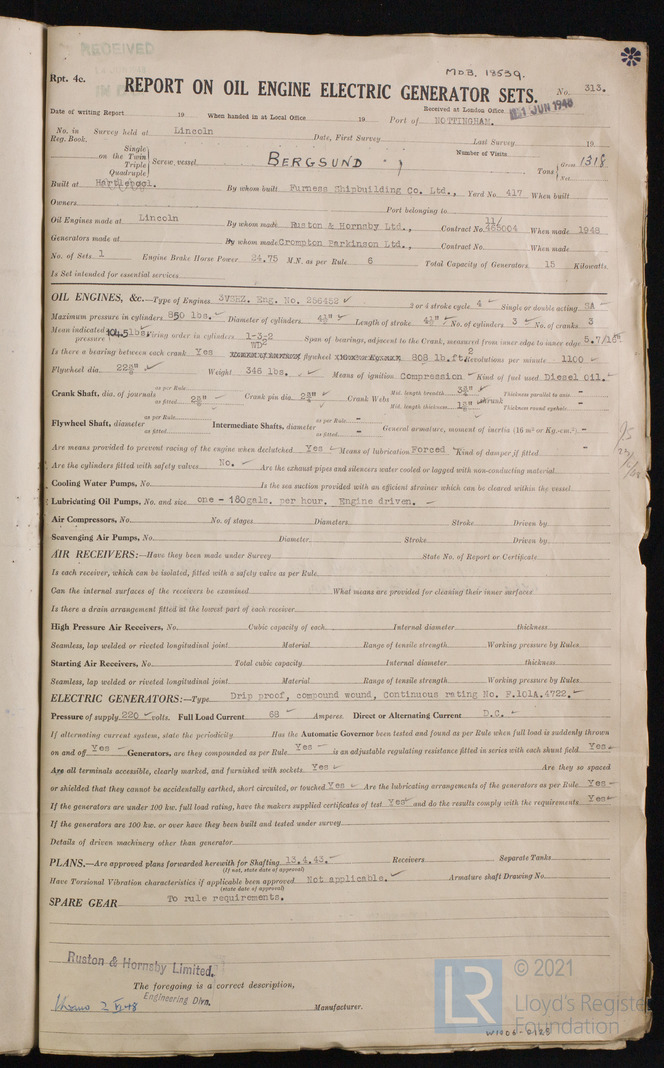 RECEIVED
MDB. 18539.
Rpt. 4c.
REPORT ON OIL ENGINE ELECTRIC GENERATOR SETS. No. 313.
Received at London Office 1 JUN 1948
Date of writing Report 19 When handed in at Local Office 19 Port of NOTTINGHAM.
No. in Reg. Book. Survey held at Lincoln Date, First Survey Last Survey 19
Number of Visits
Single on the Twin Triple Quadruple Screw vessel BERGSUND Tons Gross 1318 Net
Built at Hartlepool. By whom built Furness Shipbuilding Co. Ltd., Yard No. 417 When built
Owners Port belonging to
Oil Engines made at Lincoln By whom made Ruston & Hornsby Ltd., Contract No. 11/ 465004 When made 1948
Generators made at By whom made Crompton Parkinson Ltd., Contract No. When made
No. of Sets 1 Engine Brake Horse Power 24.75 M.N. as per Rule 6 Total Capacity of Generators 15 Kilowatts.
Is Set intended for essential services
OIL ENGINES, &c.—Type of Engines 3VSHZ. Eng. No. 256452 2 or 4 stroke cycle 4 Single or double acting SA
Maximum pressure in cylinders 850 lbs. Diameter of cylinders 4⅛" Length of stroke 4⅛" No. of cylinders 3 No. of cranks 3
Mean indicated pressure 104.5 lbs. Firing order in cylinders 1-3-2 Span of bearings, adjacent to the Crank, measured from inner edge to inner edge 5.7/16"
Is there a bearing between each crank Yes WD² flywheel 808 lb.ft² Revolutions per minute 1100
Flywheel dia. 22⅜" Weight 346 lbs. Means of ignition Compression Kind of fuel used Diesel oil.
Crank Shaft, dia. of journals as per Rule as fitted 2⅝" Crank pin dia. 2⅜" Crank Webs Mid. length breadth 3¾" Mid. length thickness 1⅛" shrunk Thickness parallel to axis - Thickness round eyehole -
Flywheel Shaft, diameter as per Rule as fitted Intermediate Shafts, diameter as per Rule - as fitted - General armature, moment of inertia (16 m² or Kg.-cm.²) -
Are means provided to prevent racing of the engine when declutched Yes Means of lubrication Forced Kind of damper, if fitted -
Are the cylinders fitted with safety valves No. Are the exhaust pipes and silencers water cooled or lagged with non-conducting material
Cooling Water Pumps, No. Is the sea suction provided with an efficient strainer which can be cleared within the vessel
Lubricating Oil Pumps, No. and size one - 180gals. per hour. Engine driven.
Air Compressors, No. No. of stages Diameters Stroke Driven by
Scavenging Air Pumps, No. Diameter Stroke Driven by
AIR RECEIVERS:—Have they been made under Survey State No. of Report or Certificate
Is each receiver, which can be isolated, fitted with a safety valve as per Rule
Can the internal surfaces of the receivers be examined What means are provided for cleaning their inner surfaces
Is there a drain arrangement fitted at the lowest part of each receiver
High Pressure Air Receivers, No. Cubic capacity of each Internal diameter thickness
Seamless, lap welded or riveted longitudinal joint Material Range of tensile strength Working pressure by Rules
Starting Air Receivers, No. Total cubic capacity Internal diameter thickness
Seamless, lap welded or riveted longitudinal joint Material Range of tensile strength Working pressure by Rules
ELECTRIC GENERATORS:—Type Drip proof, compound wound, Continuous rating No. F.101A.4722.
Pressure of supply 220 volts. Full Load Current 68 Amperes. Direct or Alternating Current D.C.
If alternating current system, state the periodicity Has the Automatic Governor been tested and found as per Rule when full load is suddenly thrown
on and off Yes Generators, are they compounded as per Rule Yes is an adjustable regulating resistance fitted in series with each shunt field Yes
Are all terminals accessible, clearly marked, and furnished with sockets Yes Are they so spaced
or shielded that they cannot be accidentally earthed, short circuited, or touched Yes Are the lubricating arrangements of the generators as per Rule Yes
If the generators are under 100 kw. full load rating, have the makers supplied certificates of test Yes and do the results comply with the requirements Yes
If the generators are 100 kw. or over have they been built and tested under survey
Details of driven machinery other than generator
PLANS.—Are approved plans forwarded herewith for Shafting 13.4.43. Receivers Separate Tanks
(If not, state date of approval)
Have Torsional Vibration characteristics if applicable been approved Not applicable. Armature shaft Drawing No.
(state date of approval)
SPARE GEAR To rule requirements.
Ruston & Hornsby Limited.
The foregoing is a correct description,
Engineering Divn.
Manufacturer.
LR © 2021
Lloyd's Register
Foundation
W1006-0125